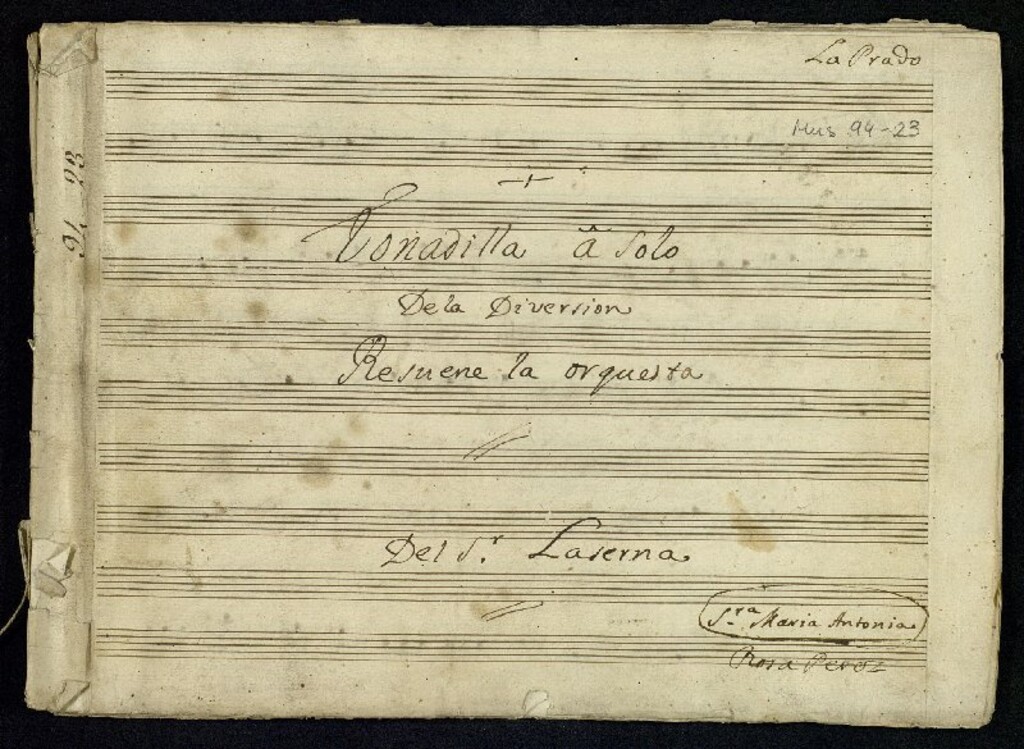 La Prado
Mus 94-23
94-23
Tonadilla â solo
Dela Diversion
Resuene la orquesta
Del Sr. Laserna
Sra Maria Antonia
Rosa Perez